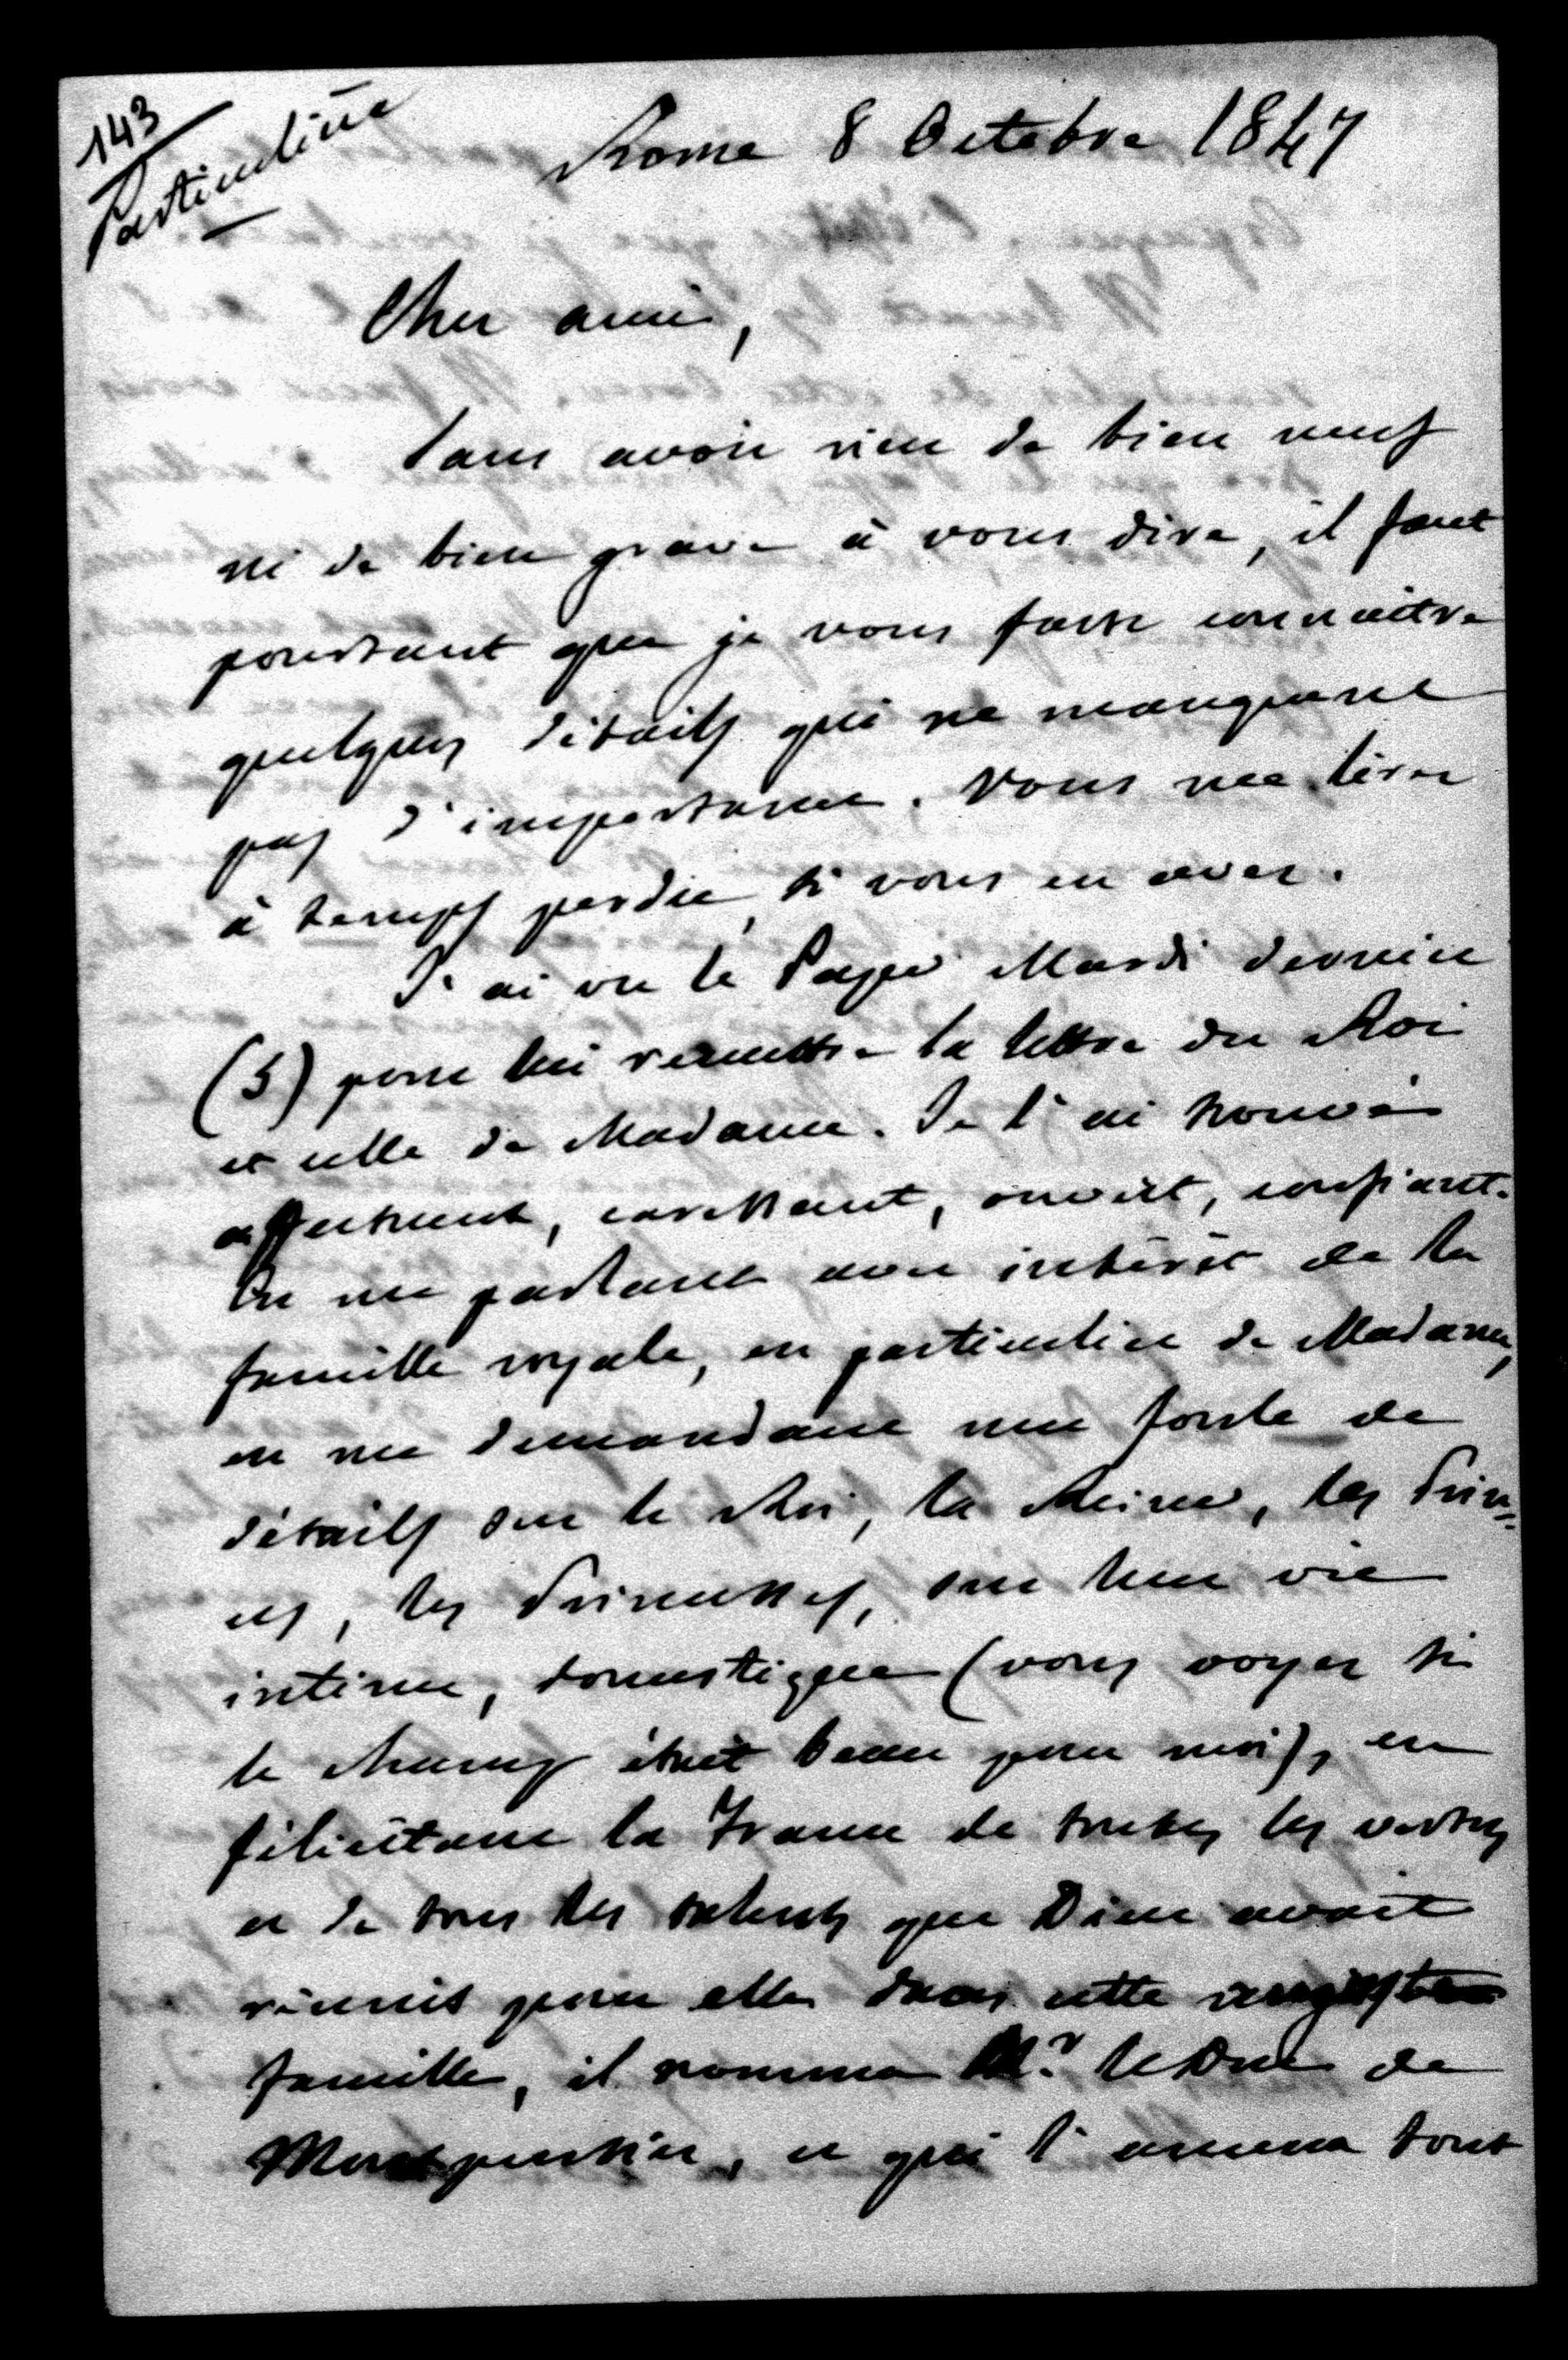 143
Particulière
Rome 8 Octobre 1847
Cher ami,
Sans avoir rien de bien neuf
ni de bien grave à vous dire, il faut
pourtant que je vous fasse connaître
quelques détails qui ne manquent
pas d'importance. Vous me lirez
à temps perdu, si vous en avez.
J'ai vu le Pape Mardi dernier
(5) pour lui remettre la lettre du Roi
et celle de Madame. Je l'ai trouvé
affectueux, caressant, ouvert, confiant.
En me parlant avec intérêt de la
famille royale, en particulier de Madame,
en me demandant une foule de
détails sur le Roi, la Reine, les Prin-
ces, les Princesses, sur leur vie
intime, domestique (vous voyez si
le champ était beau pour moi), en
félicitant la France de toutes les vertus
et de tous les talents que Dieu avait
réunis pour elle dans cette auguste
famille, il nomma Mr. le Duc de
Montpensier, ce qui l'amena tout